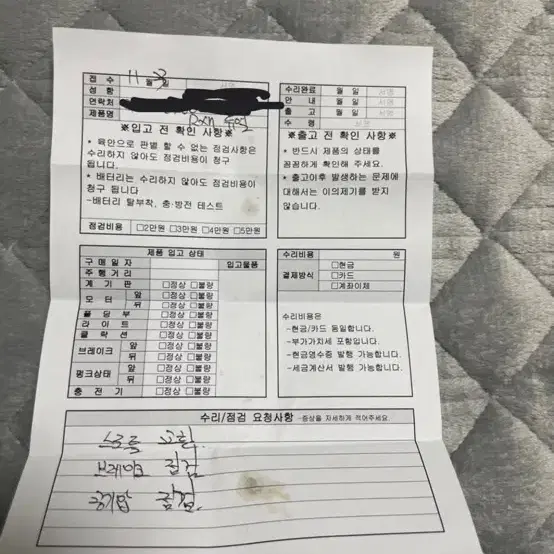 접수 11월 3일
성함
연락처
제품명
※입고 전 확인 사항※
* 육안으로 판별 할 수 없는 점검사항은
수리하지 않아도 점검비용이 청구
됩니다.
* 배터리는 수리하지 않아도 점검비용이
청구 됩니다
-배터리 탈부착, 충·방전 테스트
점검비용 □2만원 □3만원 □4만원 □5만원
수리완료 월 일 서명
안내 월 일 서명
출고 월 일 서명
수령 서명
※출고 전 확인 사항※
* 반드시 제품의 상태를
꼼꼼하게 확인해 주세요.
* 출고이후 발생하는 문제에
대해서는 이의제기를 받지
않습니다.
제품 입고 상태
구매일자 입고물품
주행거리
계기판 □정상 □불량
모터 앞 □정상 □불량
뒤 □정상 □불량
폴딩부 □정상 □불량
라이트 □정상 □불량
클락션 □정상 □불량
브레이크 앞 □정상 □불량
뒤 □정상 □불량
펑크상태 앞 □정상 □불량
뒤 □정상 □불량
충전기 □정상 □불량
수리비용 원
결제방식 □현금
□카드
□계좌이체
수리비용은
-현금/카드 동일합니다.
-부가가치세 포함입니다.
-현금영수증 발행 가능합니다.
-세금계산서 발행 가능합니다.
수리/점검 요청사항 -증상을 자세하게 적어주세요.